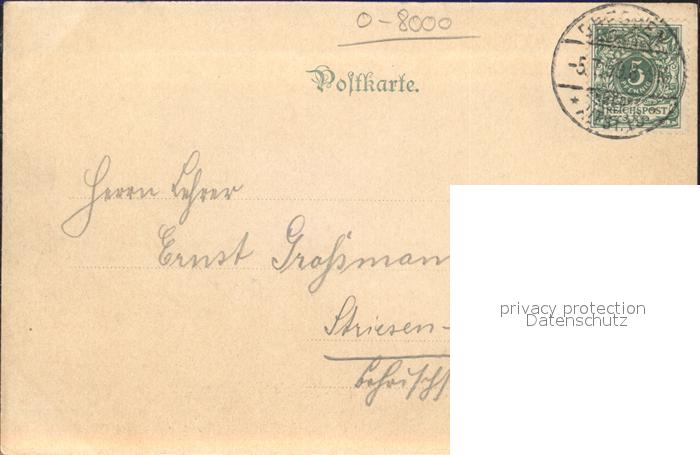 O-8000
Postkarte.
DRESDEN
5
REICHSPOST
Herrn Lehrer
Ernst Großmann
Striesen-
privacy protection
Datenschutz